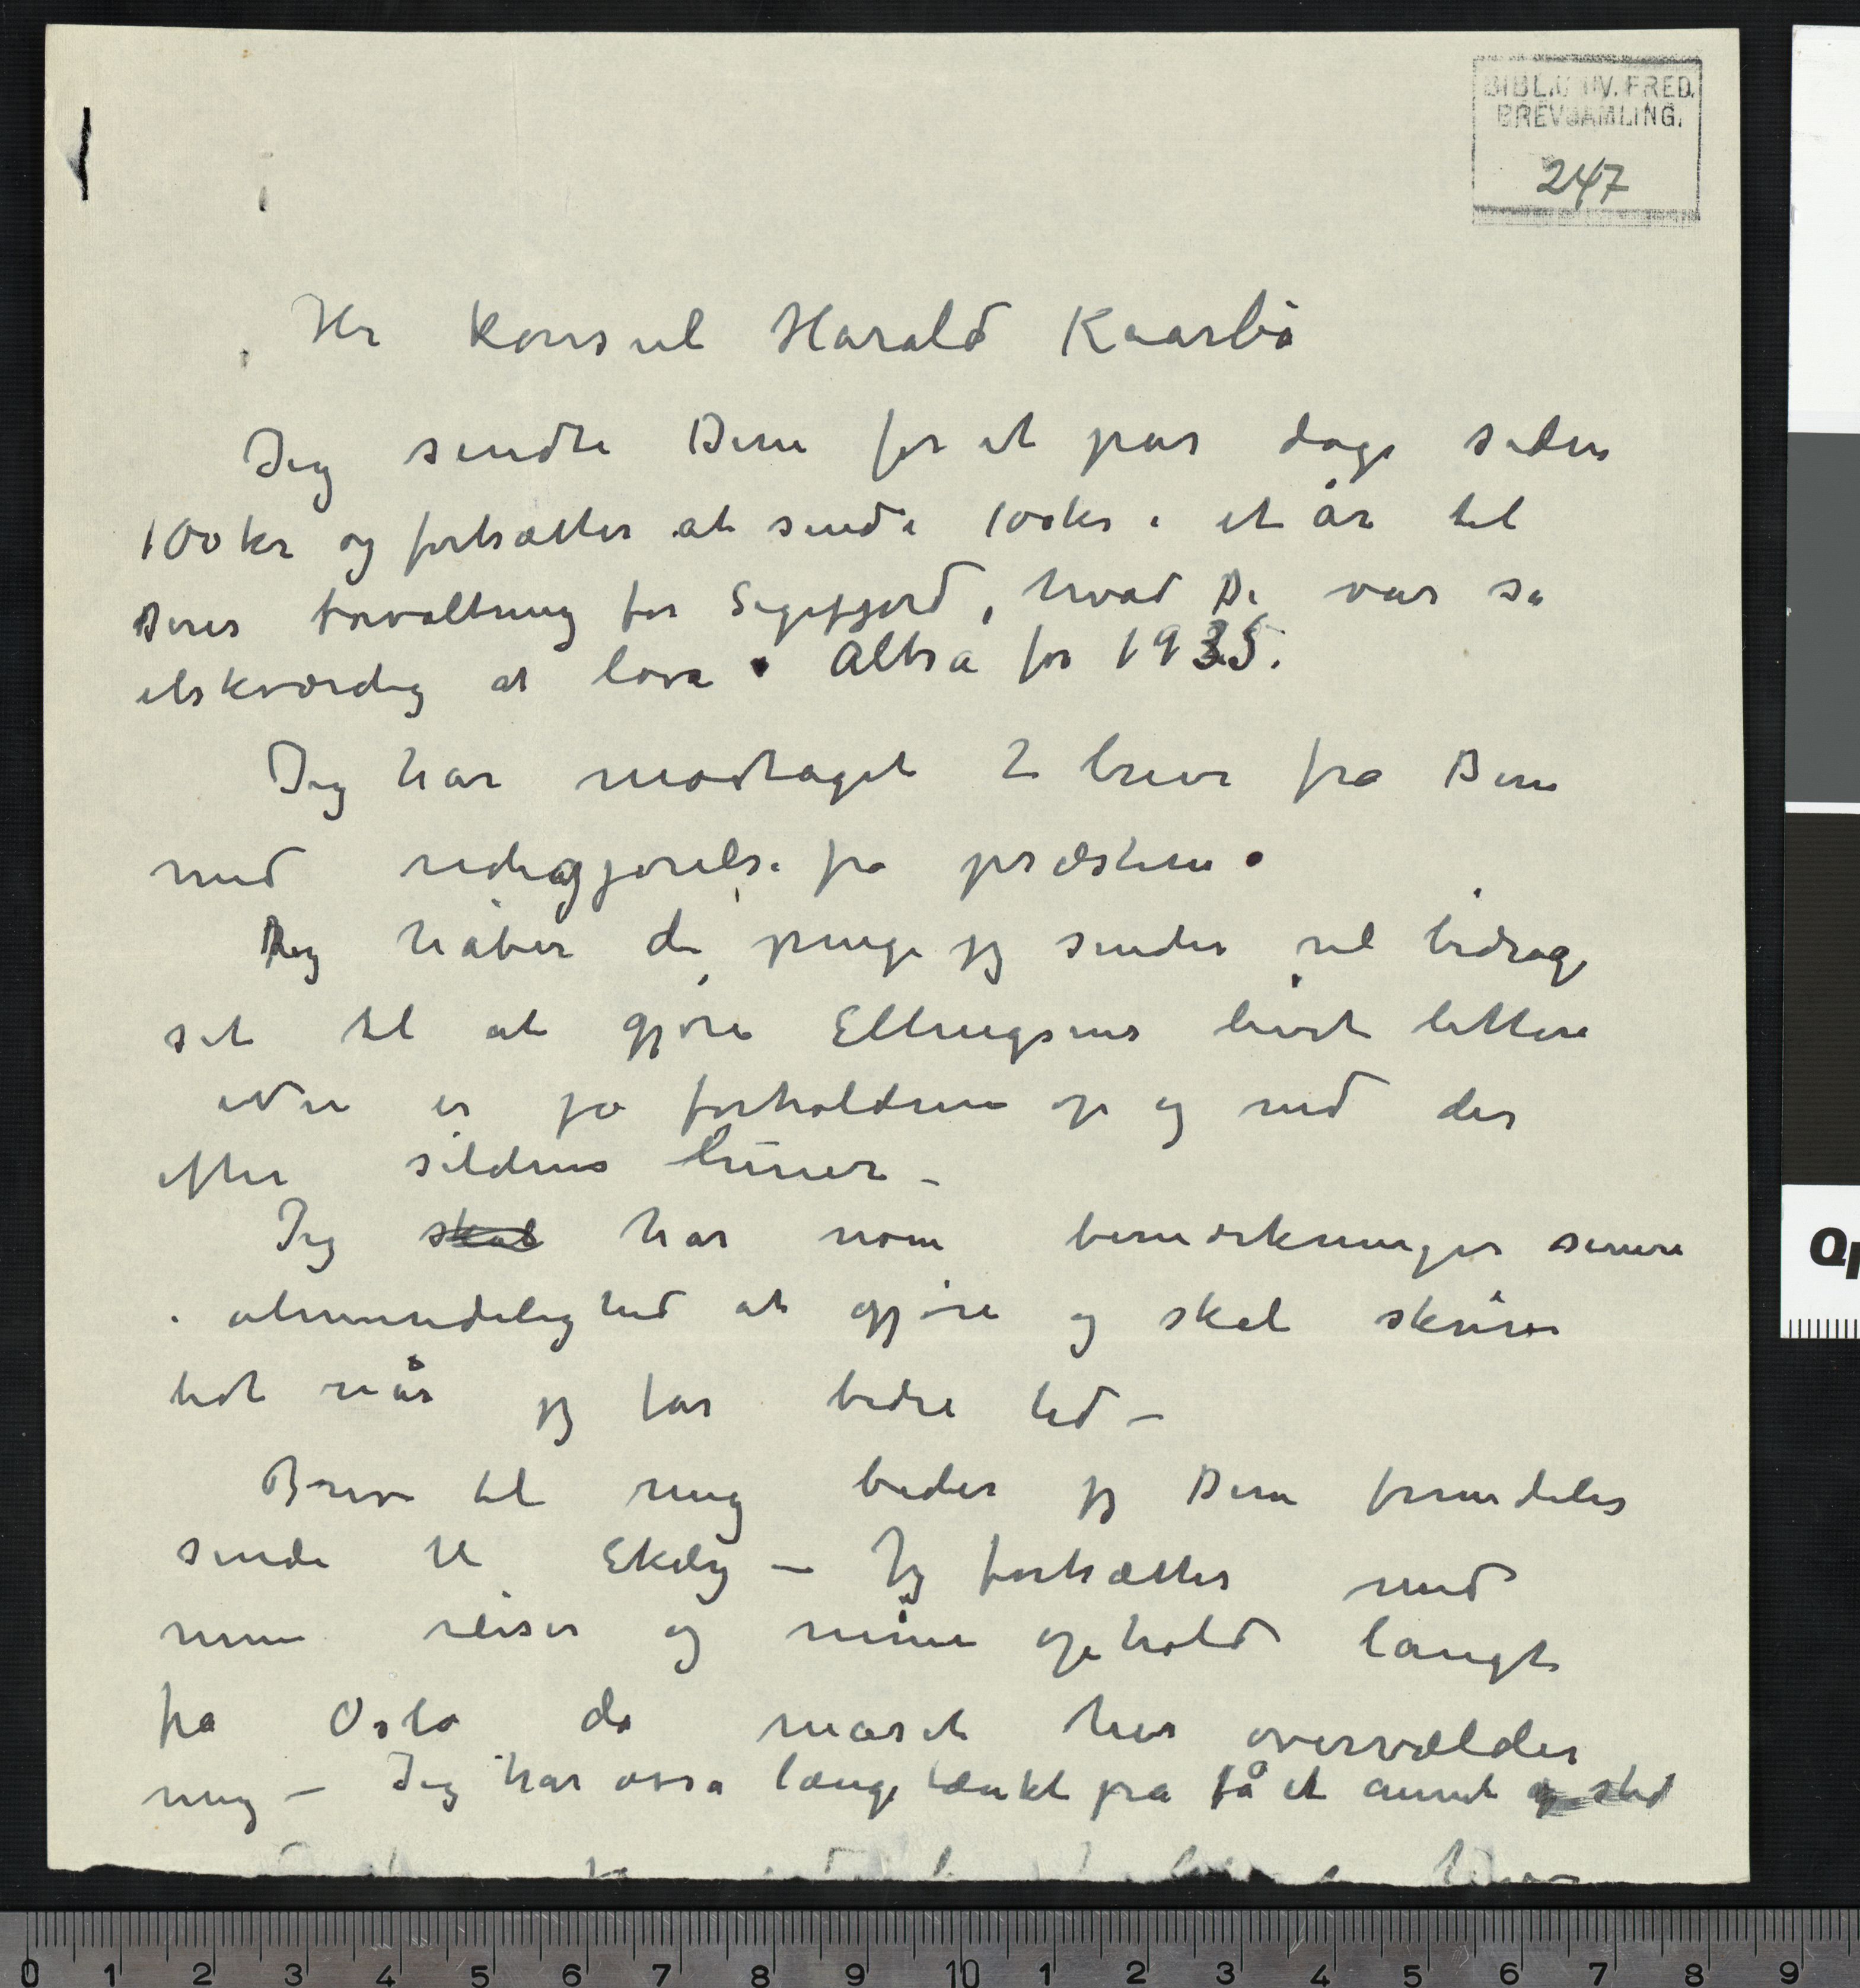 BIBL. UNIV. FRED.
BREVSAMLING.
247
Hr konsul Harald Kaarbø
Jeg sendte Dem for et par dage siden
100 kr og fortsætter at sende 100 kr i et år til
Deres forvaltning for Sigefjord, hvad De var så
elskværdig at love. Altså for 1935.
Jeg har modtaget 2 breve fra Dem
med redegjørelse fra præsten.
Jeg håber de penge jeg sender vil bidrage
sit til at gjøre Ellingsens livet lettere
Nu er jo forholdene op og ned der
efter sildens luner –
Jeg skal har nom bemærkninger senere
i almindelighed at gjøre og skal skrive
lidt når jeg får bedre tid –
Breve til mig beder jeg Dem fremdeles
sende til Ekely – Jeg fortsætter med
mine reiser og mine ophold langt
fra Oslo da maset her overvælder
mig – Jeg har også længe tænkt på få et annet sted